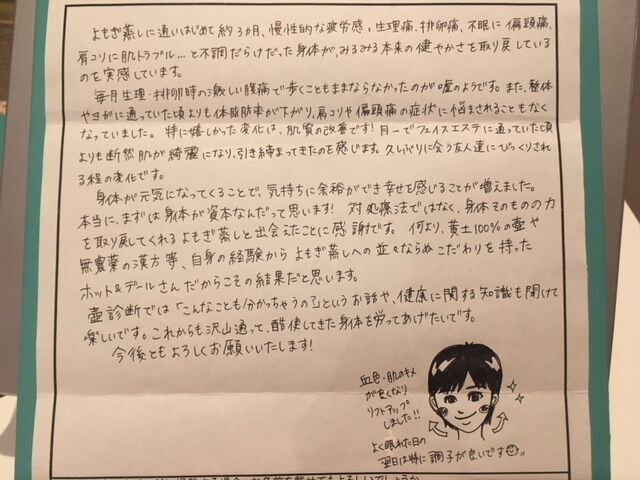 よもぎ蒸しに通いはじめて約3ヵ月、慢性的な疲労感、生理痛・排卵痛、不眠に偏頭痛、
肩コリに肌トラブル…と不調だらけだった身体が、みるみる本来の健やかさを取り戻している
のを実感しています。
毎月生理・排卵時の激しい腹痛で歩くこともままならなかったのが嘘のようです。また、整体
やヨガに通っていた頃よりも体脂肪率が下がり、肩コリや偏頭痛の症状に悩まされることもなく
なっていました。特に嬉しかった変化は、肌質の改善です!月一でフェイスエステに通っていた頃
よりも断然肌が綺麗になり、引き締まってきたのを感じます。久しぶりに会う友人達にびっくりされ
る程の変化です。
身体が元気になってくることで、気持ちに余裕ができ幸せを感じることが増えました。
本当に、まずは身体が資本なんだって思います!対処療法ではなく、身体そのものの力
を取り戻してくれるよもぎ蒸しと出会えたことに感謝です。何より、黄土100%の壺や
無農薬の漢方等、自身の経験からよもぎ蒸しへの並々ならぬこだわりを持った
ホット&デールさんだからこその結果だと思います。
壺診断では「こんなことも分かっちゃうの?」というお話や、健康に関する知識も聞けて
楽しいです。これからも沢山通って、酷使してきた身体を労ってあげたいです。
今後ともよろしくお願いいたします!
血色・肌のキメ
が良くなり
リフトアップ
しました!!
よく眠れた日の
翌日は特に調子が良いです